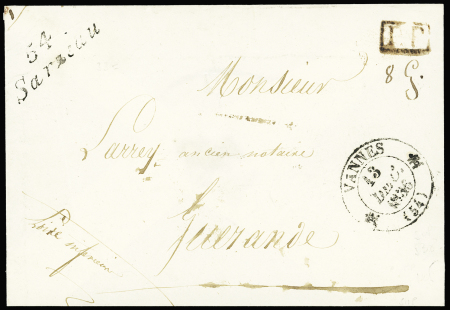 54
Sarzeau
P.P.
8 G.
Monsieur
Larrey ancien notaire
Guerande
Loire inférieure
VANNES
13
DEC.
1836
(54)